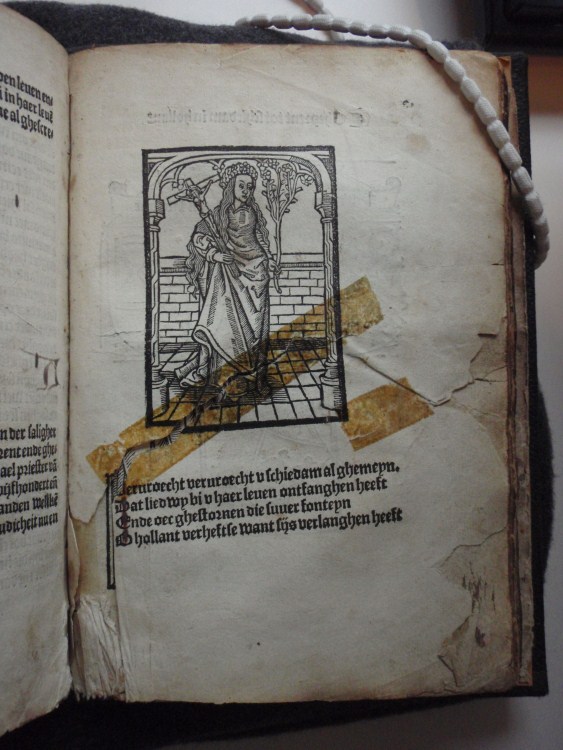 leuen
in haer leuē
al ghescre-
der saligher
ende ghe-
priester vā
vijfhondert
welckē
eruroecht veruroecht v schiedam al ghemeyn.
Dat liedwy bi v haer leuen ontfanghen heeft
Ende oec ghestornen die suuer fonteyn
O hollant verheftse want sijs verlanghen heeft